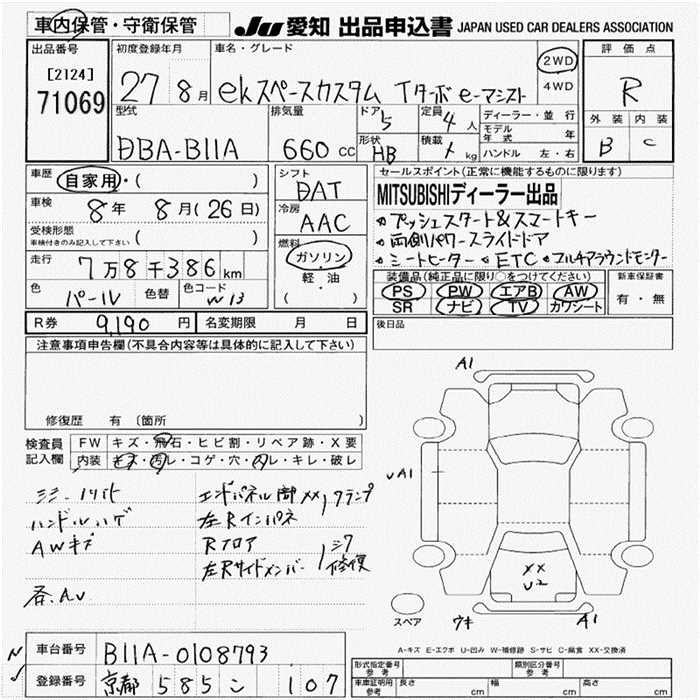 車内保管・守衛保管
JU 愛知 出品申込書 JAPAN USED CAR DEALERS ASSOCIATION
出品番号
[2124]
71069
初度登録年月
27 8月
車名・グレード
ekスペースカスタム Tターボ e-マシスト
2WD
4WD
評価点
R
外装 内装
B C
型式
DBA-B11A
排気量
660 cc
ドア
5
形状
HB
定員
4人
積載
kg
ディーラー・並行
モデル年式 年
ハンドル 左・右
車歴
自家用・( )
車検
8年 8月(26日)
受検形態
車検付きのみ記入して下さい ( )
走行
7万8千386km
色
パール 色替 色コード W13
シフト
DAT
冷房
AAC
燃料
ガソリン
軽・油
( )
セールスポイント(正常に機能するものに限ります)
MITSUBISHIディーラー出品
プッシュスタート&スマートキー
両側パワースライドドア
シートヒーター ETC マルチアラウンドモニター
装備品(純正品に限り○をつけてください)
PS PW エアB AW
SR ナビ TV カワシート
新車保証書
有・無
R券 9,190円 名変期限 月 日
後日品
注意事項申告欄(不具合内容等は具体的に記入して下さい)
修復歴 有 〔箇所 〕
検査員記入欄
FW キズ・飛石・ヒビ割・リペア跡・X要
内装 キズ・汚レ・コゲ・穴・スレ・キレ・破レ
ハンドルハゲ
AWキズ
各AU
エンドパネル 脚 XX クランプ
左Rインパネ
Rフロア
左Rサイドメンバー
シワ修復
A1
UA1
XX
U2
スペア
ウキ
A1
A-キズ E-エクボ U-凹み W-補修跡 S-サビ C-腐食 XX-交換済
車台番号 B11A-0108793
登録番号 京都 585 こ 107
形式指定番号 参考
類別区分番号 参考
車庫証明用 参考 長さ cm 幅 cm 高さ cm